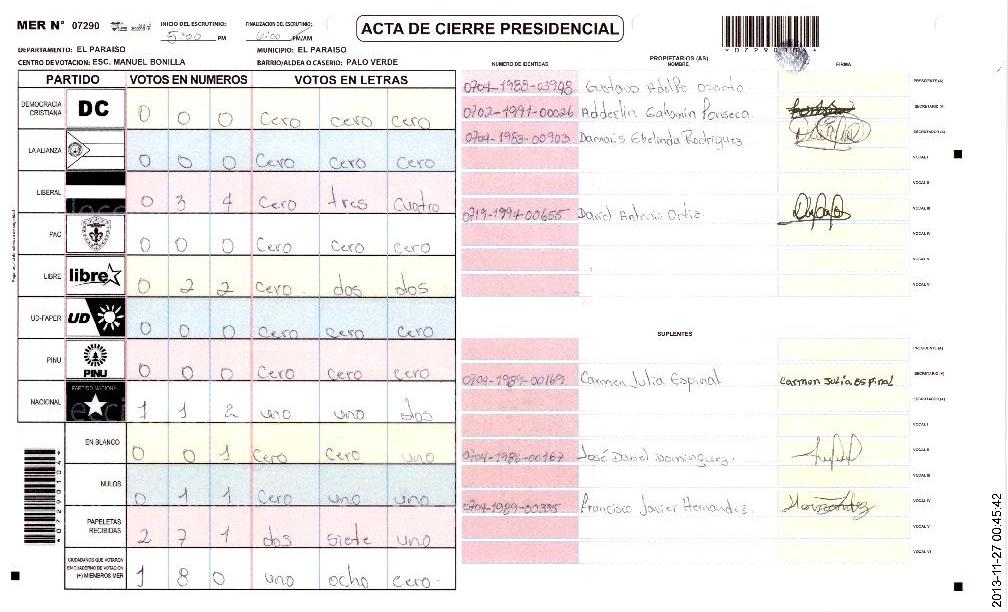 MER N° 07290
INICIO DEL ESCRUTINIO: 5:00 PM
FINALIZACION DEL ESCRUTINIO: 6:00 PM/AM
ACTA DE CIERRE PRESIDENCIAL
DEPARTAMENTO: EL PARAISO
MUNICIPIO: EL PARAISO
CENTRO DE VOTACION: ESC. MANUEL BONILLA
BARRIO/ALDEA O CASERIO: PALO VERDE
PARTIDO VOTOS EN NUMEROS VOTOS EN LETRAS
DEMOCRACIA CRISTIANA DC 0 0 0 Cero cero cero
LA ALIANZA 0 0 0 Cero cero cero
LIBERAL 0 3 4 Cero tres Cuatro
PAC 0 0 0 Cero Cero Cero
LIBRE libre 0 2 2 Cero dos dos
UD-FAPER UD 0 0 0 Cero Cero Cero
PINU PINU 0 0 0 Cero Cero cero
NACIONAL PARTIDO NACIONAL 1 1 2 uno uno dos
EN BLANCO 0 0 1 Cero Cero uno
NULOS 0 1 1 Cero uno uno
PAPELETAS RECIBIDAS 2 7 1 dos siete uno
CIUDADANOS QUE VOTARON EN CUADERNO DE VOTACION (+) MIEMBROS MER 1 8 0 uno ocho cero
NUMERO DE IDENTIDAD
PROPIETARIOS (AS)
NOMBRE
FIRMA
0704-1988-03998 Gustavo Adolfo PRESIDENTE (A)
0702-1991-00026 Adderlin Fonseca SECRETARIO (A)
0704-1983-00903 Damaris Etelinda Rodriguez ESCRUTADOR (A)
VOCAL I
VOCAL II
0719-1994-00655 Daniel Antonio Ortiz VOCAL III
VOCAL IV
VOCAL V
SUPLENTES
PRESIDENTE (A)
0704-1989-00169 Carmen Julia Espinal Carmen Julia Espinal SECRETARIO (A)
ESCRUTADOR (A)
VOCAL I
0704-1986-00167 José Daniel Dominguez. VOCAL II
VOCAL III
0704-1989-00335 Francisco Javier Hernandez VOCAL IV
VOCAL V
VOCAL VI
2013-11-27 00:45:42